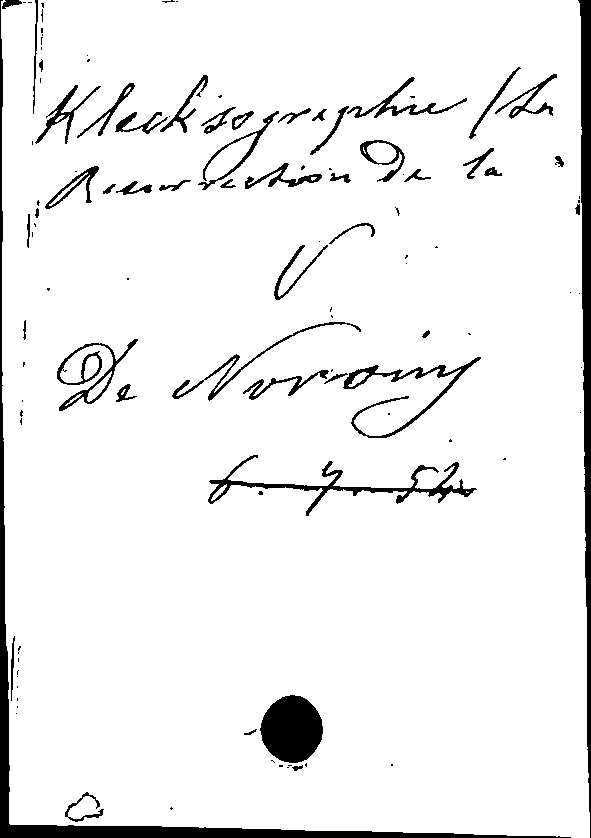 Klecksographie / La
Resurrection De la
V
De Norvins
6. 7. 54